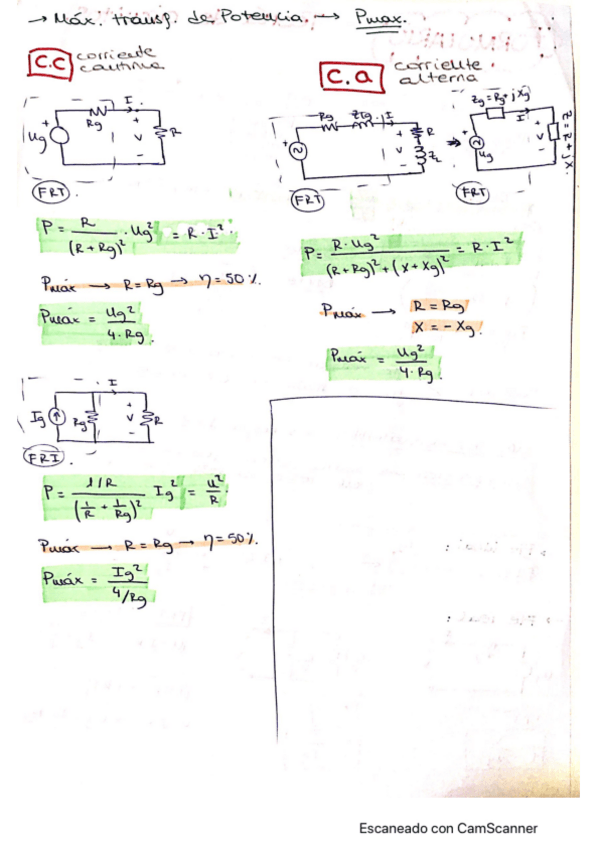 → Máx. transf. de Potencia. → Pmax.
C.C corriente continua
+ Ug - Rg I. + V - R
FRT
P = R / (R+Rg)² · Ug² = R · I².
Pmáx → R = Rg → η = 50%.
Pmáx = Ug² / 4·Rg.
Ig Rg I + V - R
FRI.
P = 1/R / (1/R + 1/Rg)² Ig² = U²/R.
Pmáx → R = Rg → η = 50%.
Pmáx = Ig² / 4/Rg
C.a corriente alterna
+ Rg I + V - R ZL
FRT
Zg = Rg + jXg
+ Ug I + V - Z = R + jX
FRT
P = R·Ug² / (R+Rg)² + (X+Xg)² = R · I²
Pmáx → R = Rg
X = -Xg.
Pmáx = Ug² / 4·Rg.
Escaneado con CamScanner